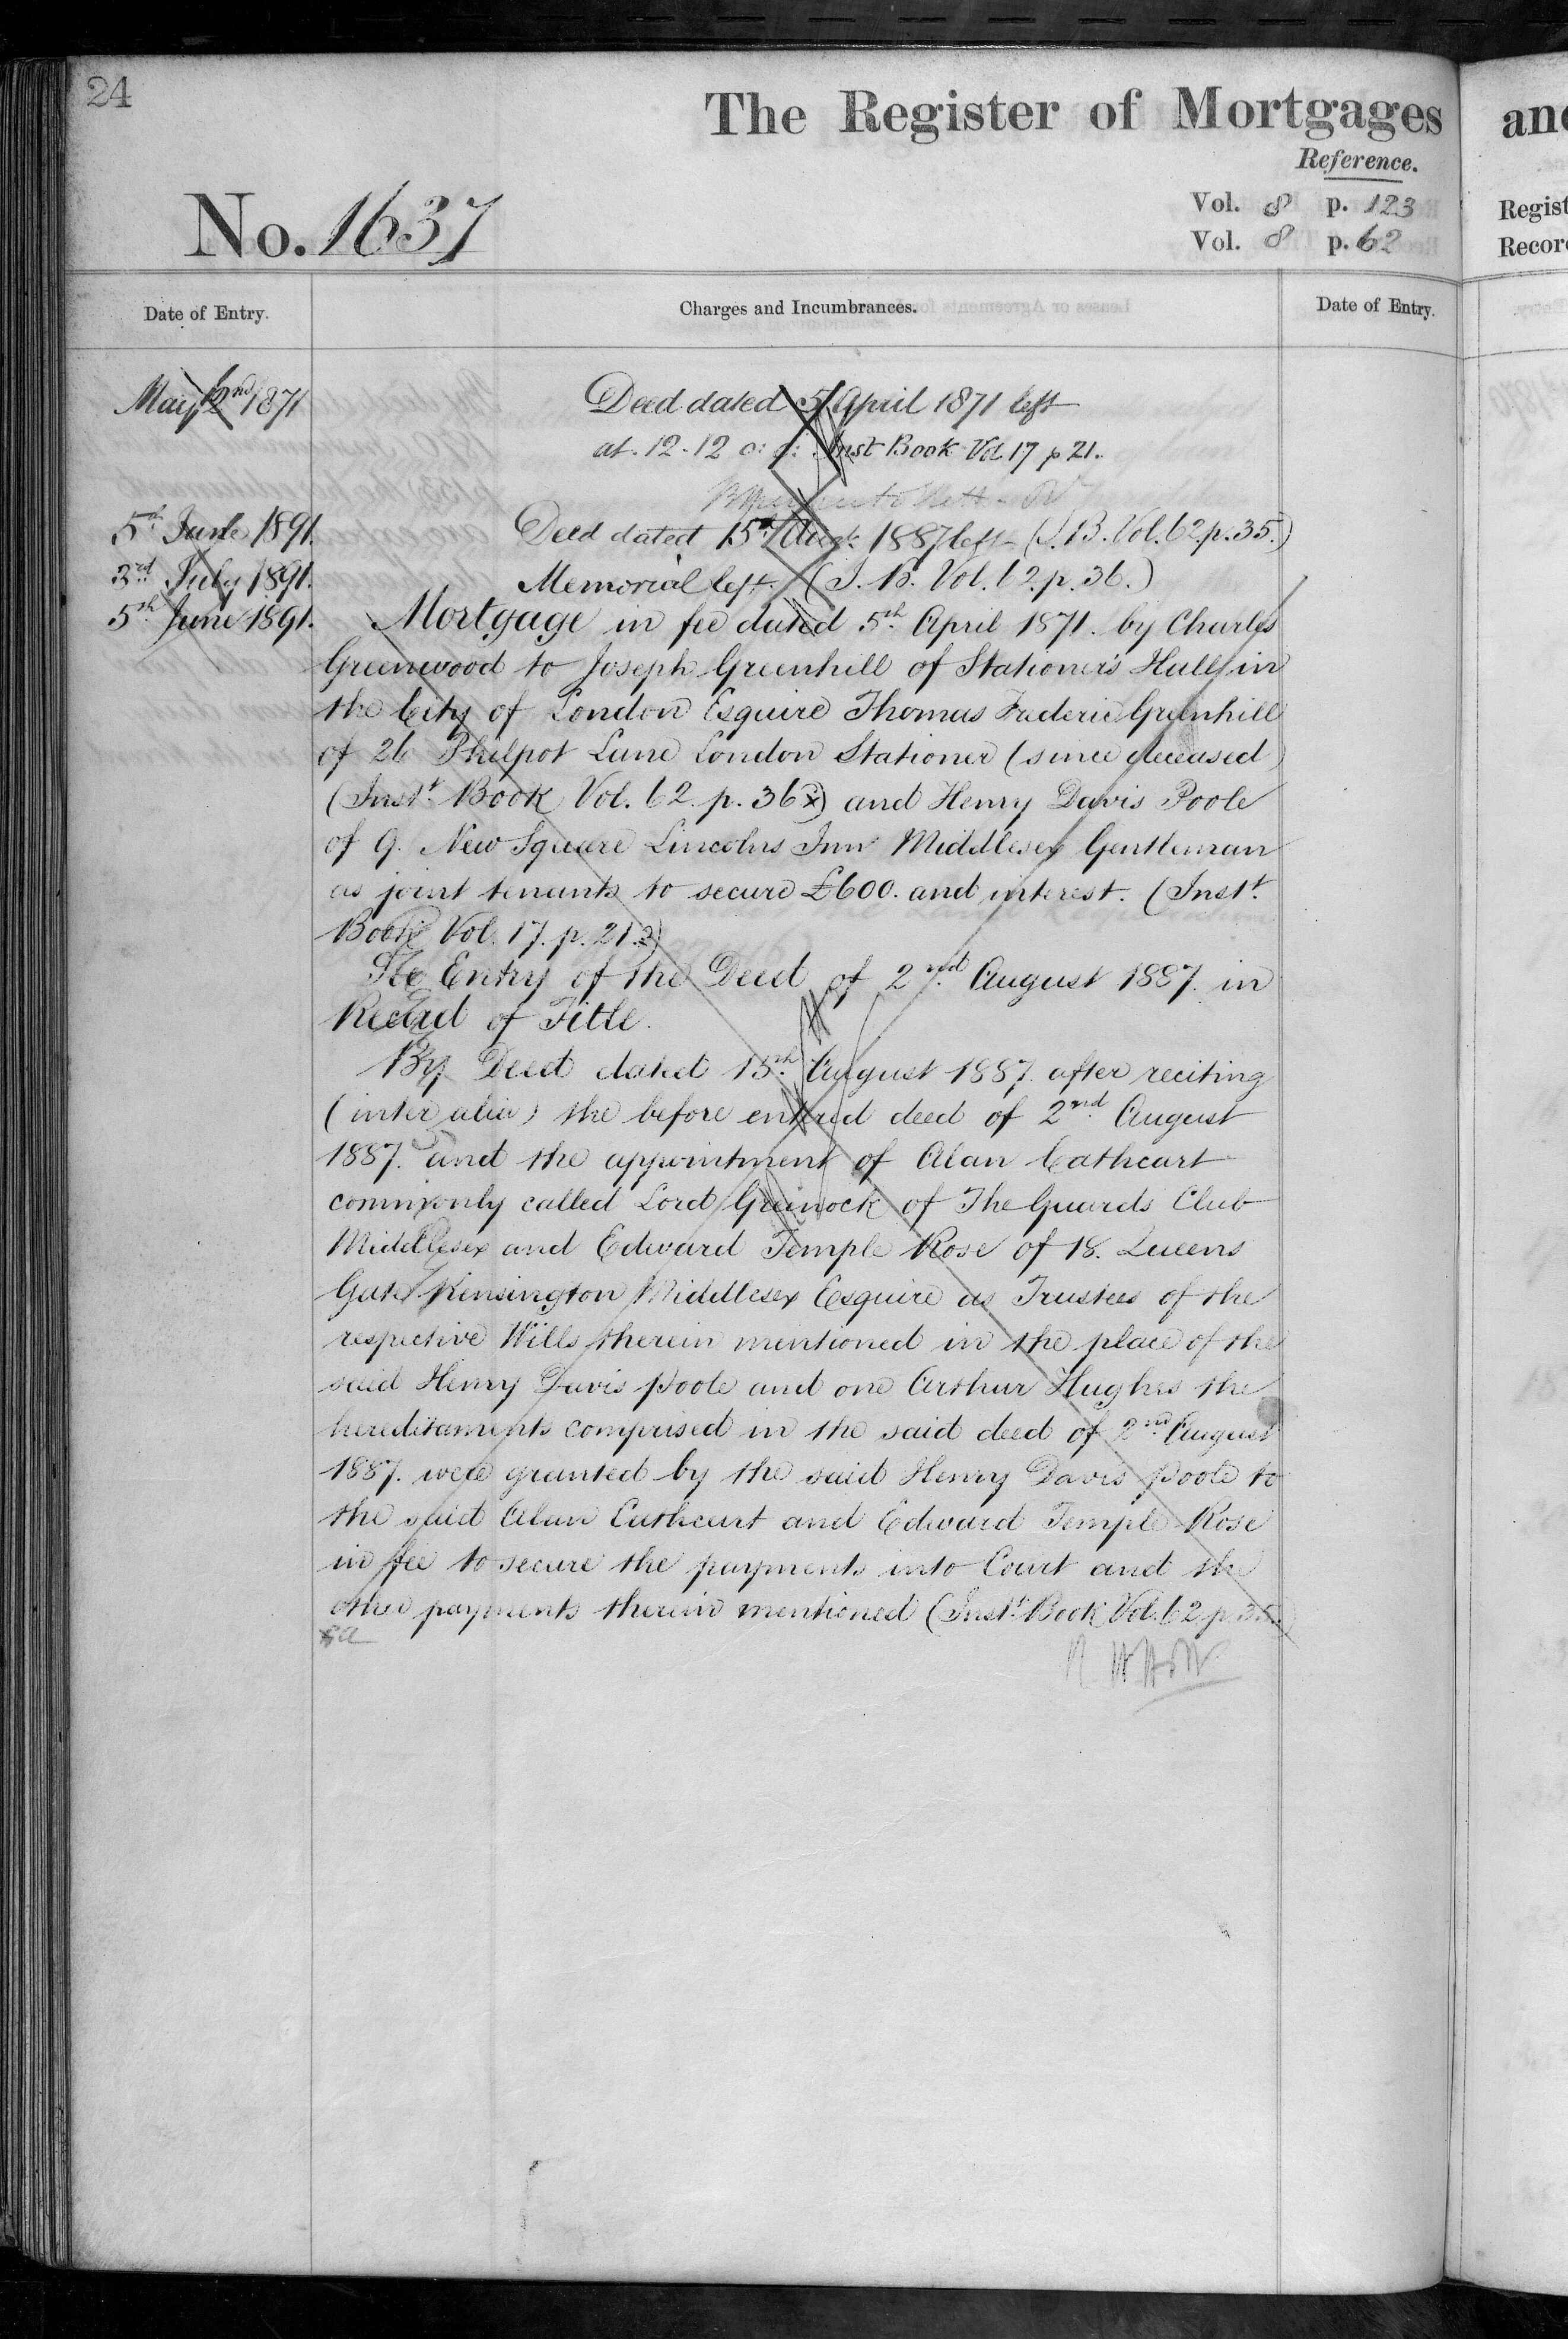 24
The Register of Mortgages
Reference.
No. 1637
Vol. 8 p. 123
Vol. 8 p. 62
Date of Entry.
Charges and Incumbrances.
Date of Entry.
May 2nd 1871
Deed dated 5 April 1871 left
at 12-12 o: c: Inst Book Vol. 17 p 21.
5th June 1891.
Deed dated 15th Augt. 1887 left (I.B. Vol. 62. p. 35.)
3rd July 1891.
Memorial left. (I. B. Vol. 62. p. 36.)
5th June 1891.
Mortgage in fee dated 5th April 1871. by Charles
Greenwood to Joseph Greenhill of Stationer's Hall in
the City of London Esquire Thomas Frederic Greenhill
of 26 Philpot Lane London Stationer (since deceased)
(Instt. Book Vol. 62. p. 36) and Henry Davis Poole
of 9. New Square Lincolns Inn Middlesex Gentleman
as joint tenants to secure £600. and interest. (Instt.
Book Vol. 17. p. 21.)
See Entry of the Deed of 2nd August 1887. in
Record of Title.
By Deed dated 15th August 1887. after reciting
(inter alia) the before entered deed of 2nd August
1887. and the appointment of Alan Cathcart
commonly called Lord Greenock of The Guards Club
Middlesex and Edward Temple Rose of 18. Queens
Gate Kensington Middlesex Esquire as Trustees of the
respective Wills therein mentioned in the place of the
said Henry Davis Poole and one Arthur Hughes the
hereditaments comprised in the said deed of 2nd August
1887. were granted by the said Henry Davis Poole to
the said Alan Cathcart and Edward Temple Rose
in fee to secure the payments into Court and the
other payments therein mentioned (Instt. Book Vol. 62. p. 35.)
and
Regist
Record